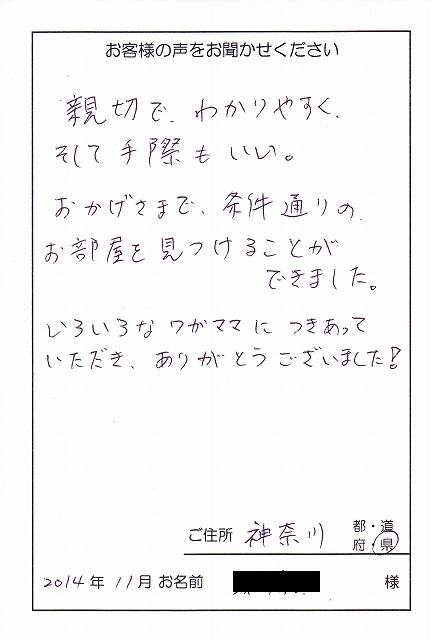 お客様の声をお聞かせください
親切で、わかりやすく、
そして手際もいい。
おかげさまで、条件通りの
お部屋を見つけることが
できました。
いろいろなワガママにつきあって
いただき、ありがとうございました!
ご住所 神奈川 都・道
府・県
2014年 11月 お名前 様